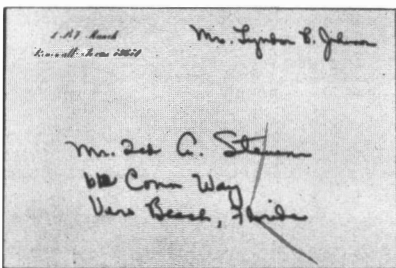 LBJ Ranch
Stonewall, Texas 78671
Mrs. Lyndon B. Johnson
Mr. Ted A. Stevens
Conn Way
Vero Beach, Florida